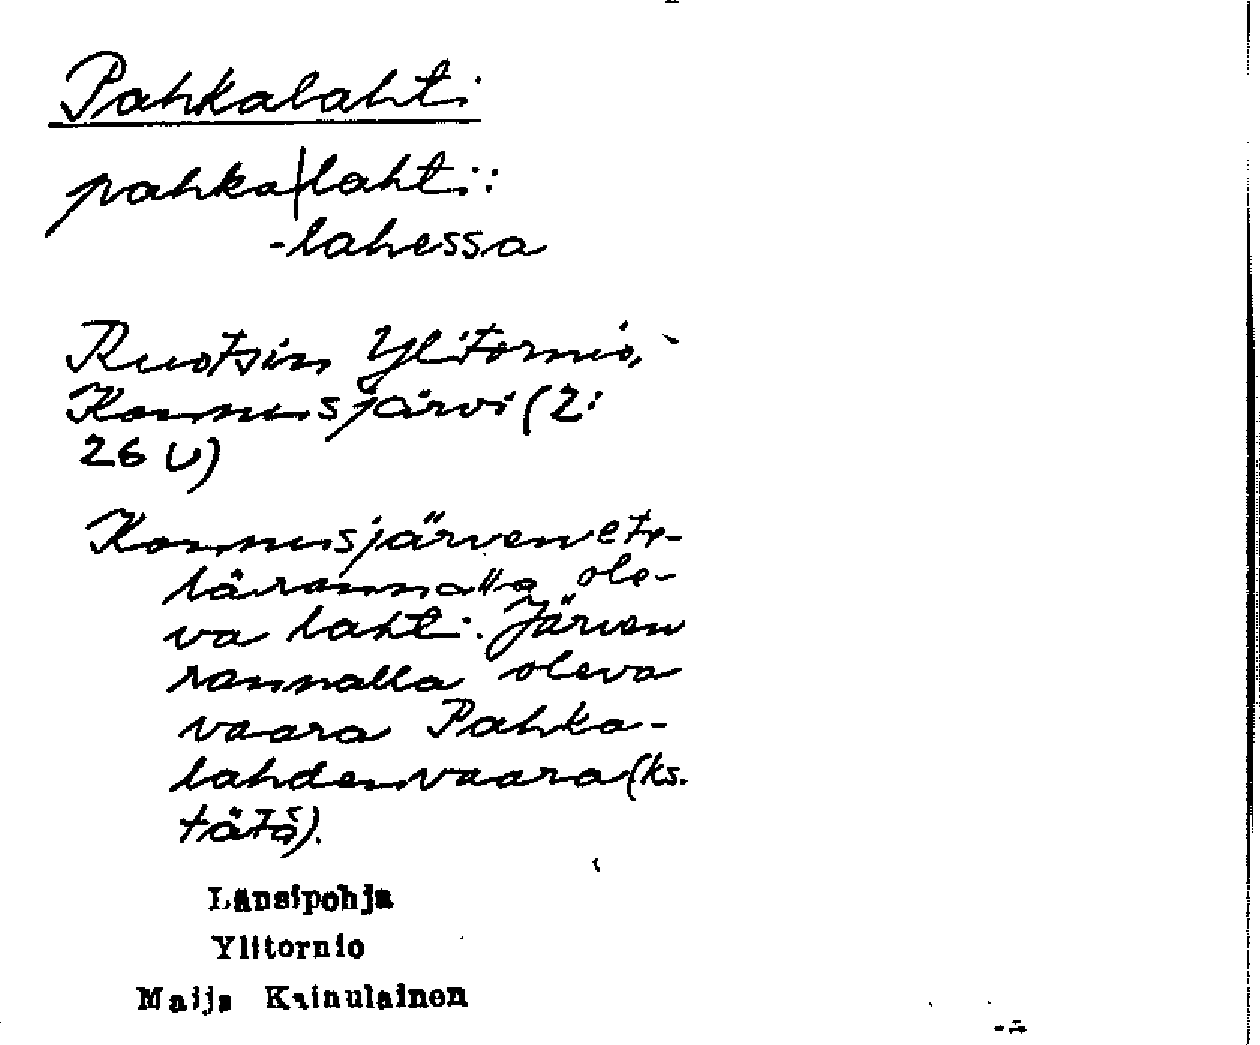 Pahkalahti
pahka|lahti:
-lahessa
Ruotsin Ylitornio,
Konnusjärvi (2:
26 U)
Konnusjärven ete-
lärannalla ole-
va lahti. Järven
rannalla oleva
vaara Pahka-
lahdenvaara (ks.
tätä).
Länsipohja
Ylitornio
Maija Kainulainen